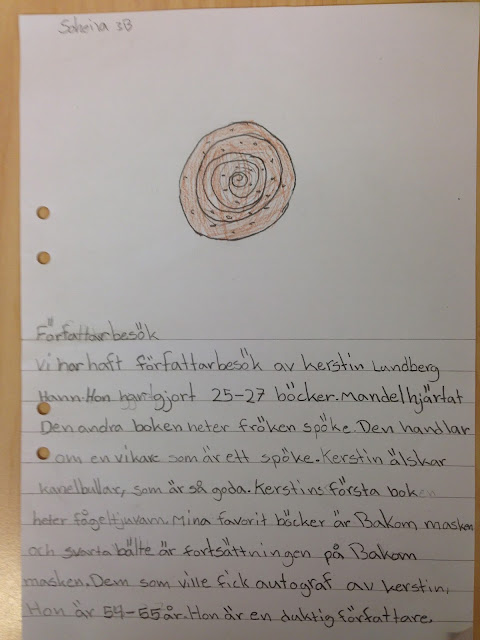 Saheila 3B
Författarbesök
Vi har haft författarbesök av kerstin Lundberg
Hann. Hon har gjort 25-27 böcker. Mandelhjärtat
Den andra boken heter fröken spöke. Den handlar
om en vikare som är ett spöke. Kerstin älskar
kanelbullar, som är så goda. Kerstins första boken
heter fågeltjuvarn. Mina favorit böcker är Bakom masken
och svarta bälte är fortsättningen på Bakom
masken. Dem som ville fick autograf av kerstin,
Hon är 54-55 år. Hon är en duktig författare.